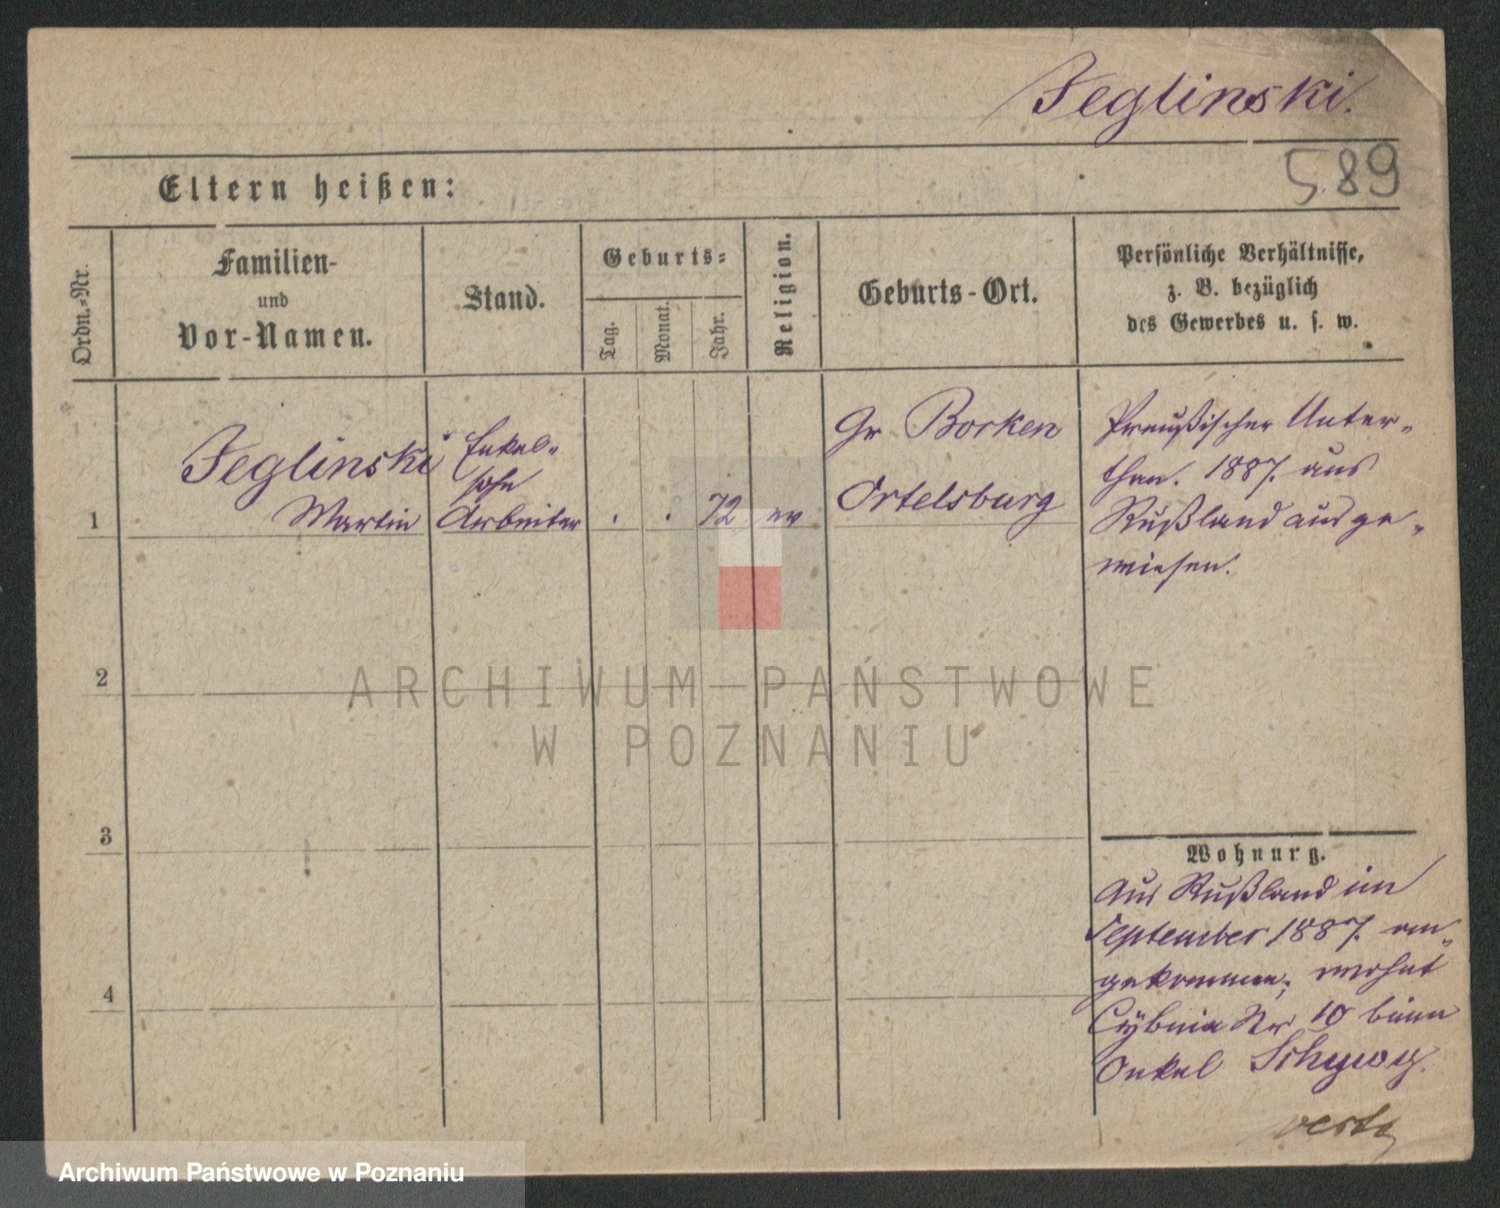 Jeglinski.
589
Eltern heißen:
Ordn.-Nr.
Familien-
und
Vor-Namen.
Stand.
Geburts-
Tag.
Monat.
Jahr.
Religion.
Geburts-Ort.
Persönliche Verhältnisse,
z. B. bezüglich
des Gewerbes u. s. w.
1
Jeglinski
Martin
Enkel-
sohn
Arbeiter
. . 72
ev
Gr Borken
Ortelsburg
Preußischer Unter-
than. 1887. aus
Rußland ausge-
wiesen.
2
3
4
Wohnung.
Aus Rußland im
September 1887. an-
gekommen; wohnt
Cybina Nr 10 beim
Onkel
ARCHIWUM PAŃSTWOWE
W POZNANIU
Archiwum Państwowe w Poznaniu